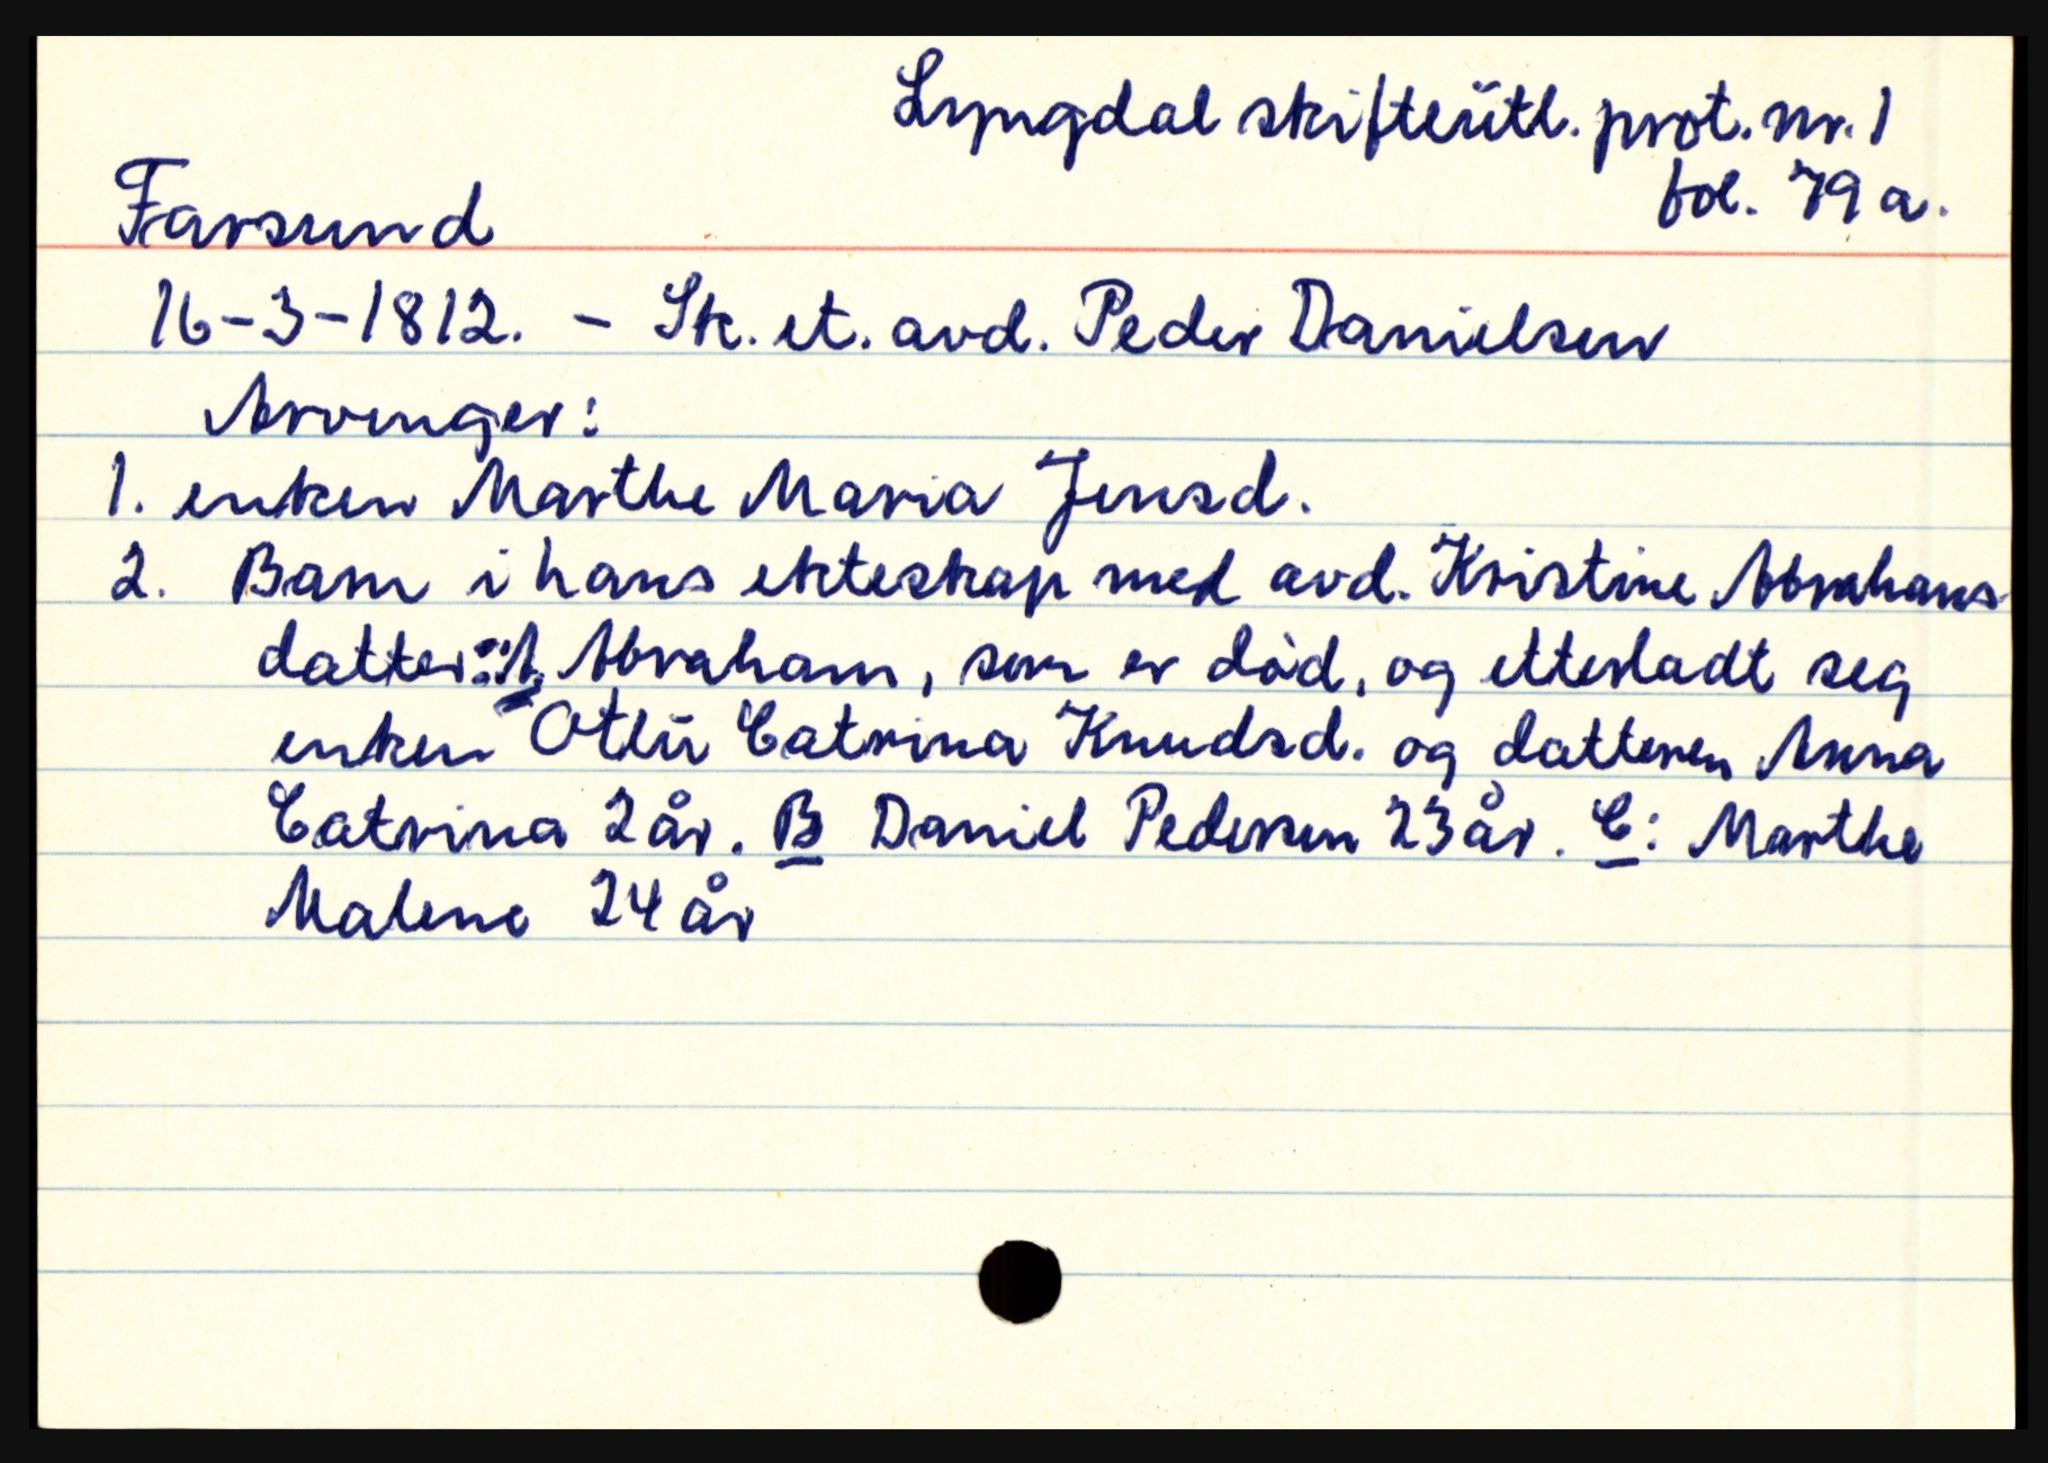 Lyngdal skifteutl. prot. nr. 1
fol. 79 a.
Farsund
16-3-1812. - Sk. et. avd. Peder Danielsen
Arvinger:
1. enken Marthe Maria Jensd.
2. Barn i hans ekteskap med avd. Kristine Abrahams-
datter: A Abraham, som er død, og etterladt seg
enken Catrina Knudsd. og datteren Anna
Catrina 2 år. B Daniel Pedersen 23 år. C: Marthe
Malene 24 år